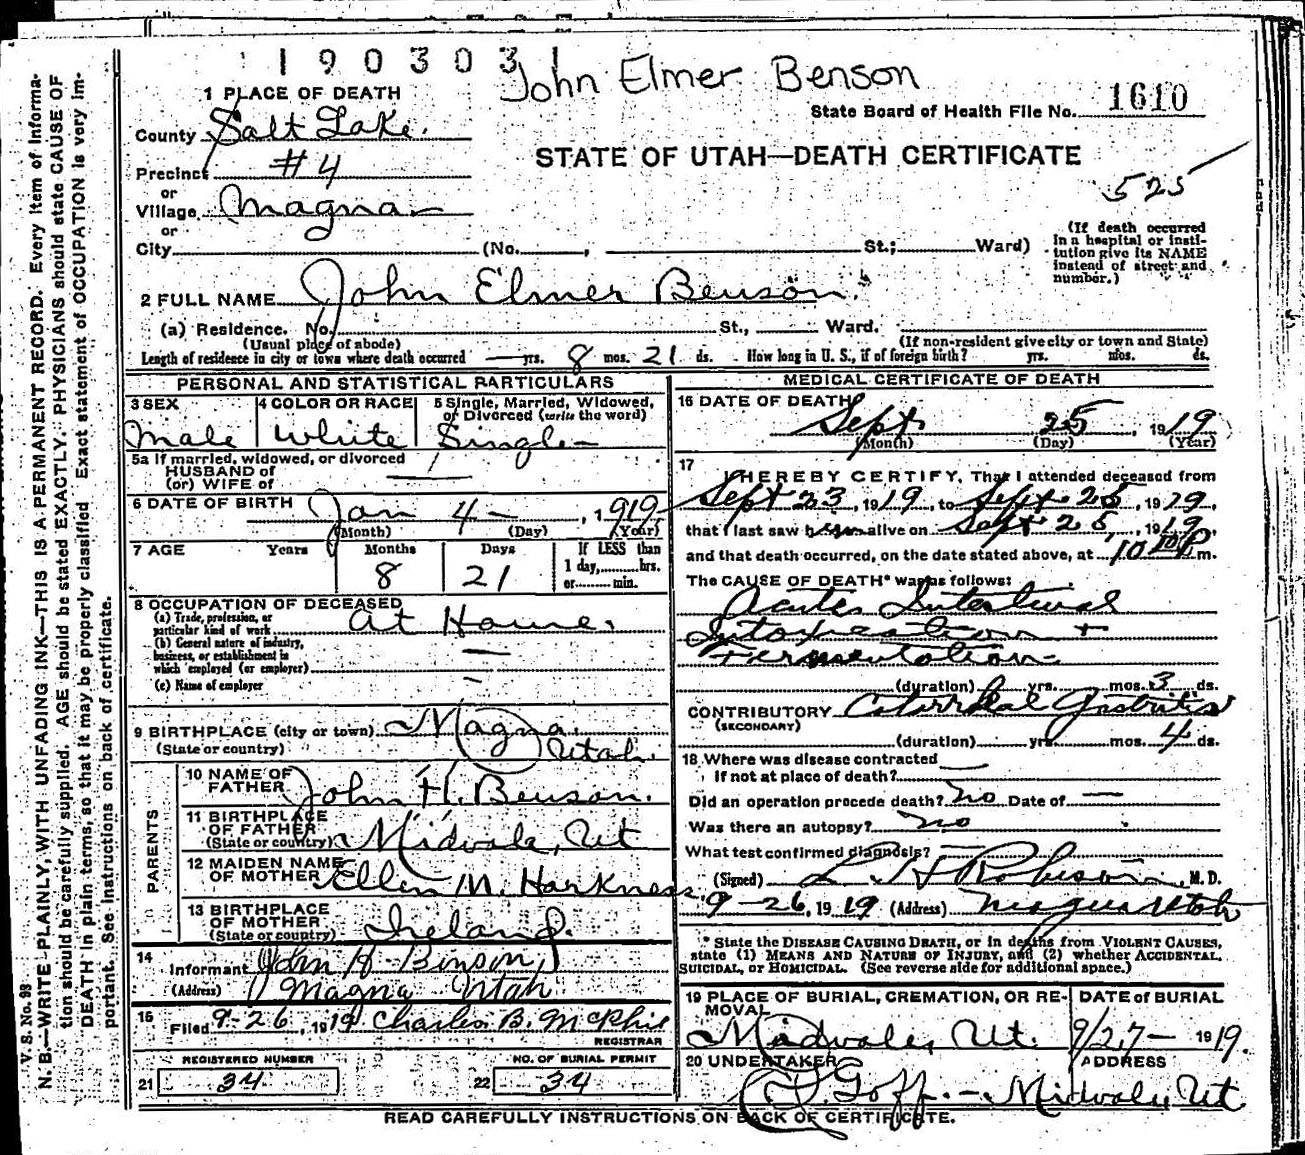 190303
John Elmer Benson
1 PLACE OF DEATH
State Board of Health File No. 1610
County Salt Lake.
STATE OF UTAH—DEATH CERTIFICATE
Precinct #4
525
or
Village Magna
or
City (No. , St.; Ward)
(If death occurred in a hospital or institution give its NAME instead of street and number.)
2 FULL NAME John Elmer Benson.
(a) Residence. No. St., Ward.
(Usual place of abode) (If non-resident give city or town and State)
Length of residence in city or town where death occurred — yrs. 8 mos. 21 ds. How long in U. S., if of foreign birth? yrs. mos. ds.
PERSONAL AND STATISTICAL PARTICULARS
3 SEX 4 COLOR OR RACE 5 Single, Married, Widowed, or Divorced (write the word)
Male White Single
5a If married, widowed, or divorced
HUSBAND of
(or) WIFE of —
6 DATE OF BIRTH Jan 4 — , 1919
(Month) (Day) (Year)
7 AGE Years Months Days If LESS than
1 day, hrs.
8 21 or min.
8 OCCUPATION OF DECEASED
(a) Trade, profession, or particular kind of work At Home.
(b) General nature of industry, business, or establishment in which employed (or employer) —
(c) Name of employer —
9 BIRTHPLACE (city or town) Magna,
(State or country) Utah.
PARENTS
10 NAME OF FATHER John H. Benson.
11 BIRTHPLACE OF FATHER (State or country) Midvale, Ut
12 MAIDEN NAME OF MOTHER Ellen M. Harkness
13 BIRTHPLACE OF MOTHER (State or country) Ireland.
14 Informant John H. Benson,
(Address) Magna Utah
15 Filed 9-26, 1919 Charles B. McPhie
REGISTRAR
REGISTERED NUMBER NO. OF BURIAL PERMIT
21 34 22 34
MEDICAL CERTIFICATE OF DEATH
16 DATE OF DEATH
Sept 25, 1919
(Month) (Day) (Year)
17 I HEREBY CERTIFY, That I attended deceased from
Sept 23, 1919, to Sept 25, 1919,
that I last saw him alive on Sept 25, 1919,
and that death occurred, on the date stated above, at 10 P m.
The CAUSE OF DEATH* was as follows:
Acute Intestinal
Intoxication +
Fermentation
(duration) yrs. mos. 3 ds.
CONTRIBUTORY Catarrhal Gastritis
(SECONDARY)
(duration) yrs. mos. 4 ds.
18 Where was disease contracted —
If not at place of death?
Did an operation precede death? No Date of —
Was there an autopsy? No
What test confirmed diagnosis? —
(Signed) L H Robinson, M. D.
9-26, 1919 (Address) Magna Utah
* State the DISEASE CAUSING DEATH, or in deaths from VIOLENT CAUSES,
state (1) MEANS AND NATURE OF INJURY, and (2) whether ACCIDENTAL,
SUICIDAL, or HOMICIDAL. (See reverse side for additional space.)
19 PLACE OF BURIAL, CREMATION, OR REMOVAL DATE of BURIAL
Midvale, Ut. 9/27 — 1919.
20 UNDERTAKER ADDRESS
Goff. — Midvale, Ut.
READ CAREFULLY INSTRUCTIONS ON BACK OF CERTIFICATE.
V. S. No. 93
N. B.—WRITE PLAINLY, WITH UNFADING INK—THIS IS A PERMANENT RECORD. Every item of information should be carefully supplied. AGE should be stated EXACTLY. PHYSICIANS should state CAUSE OF DEATH in plain terms, so that it may be properly classified. Exact statement of OCCUPATION is very important. See instructions on back of certificate.